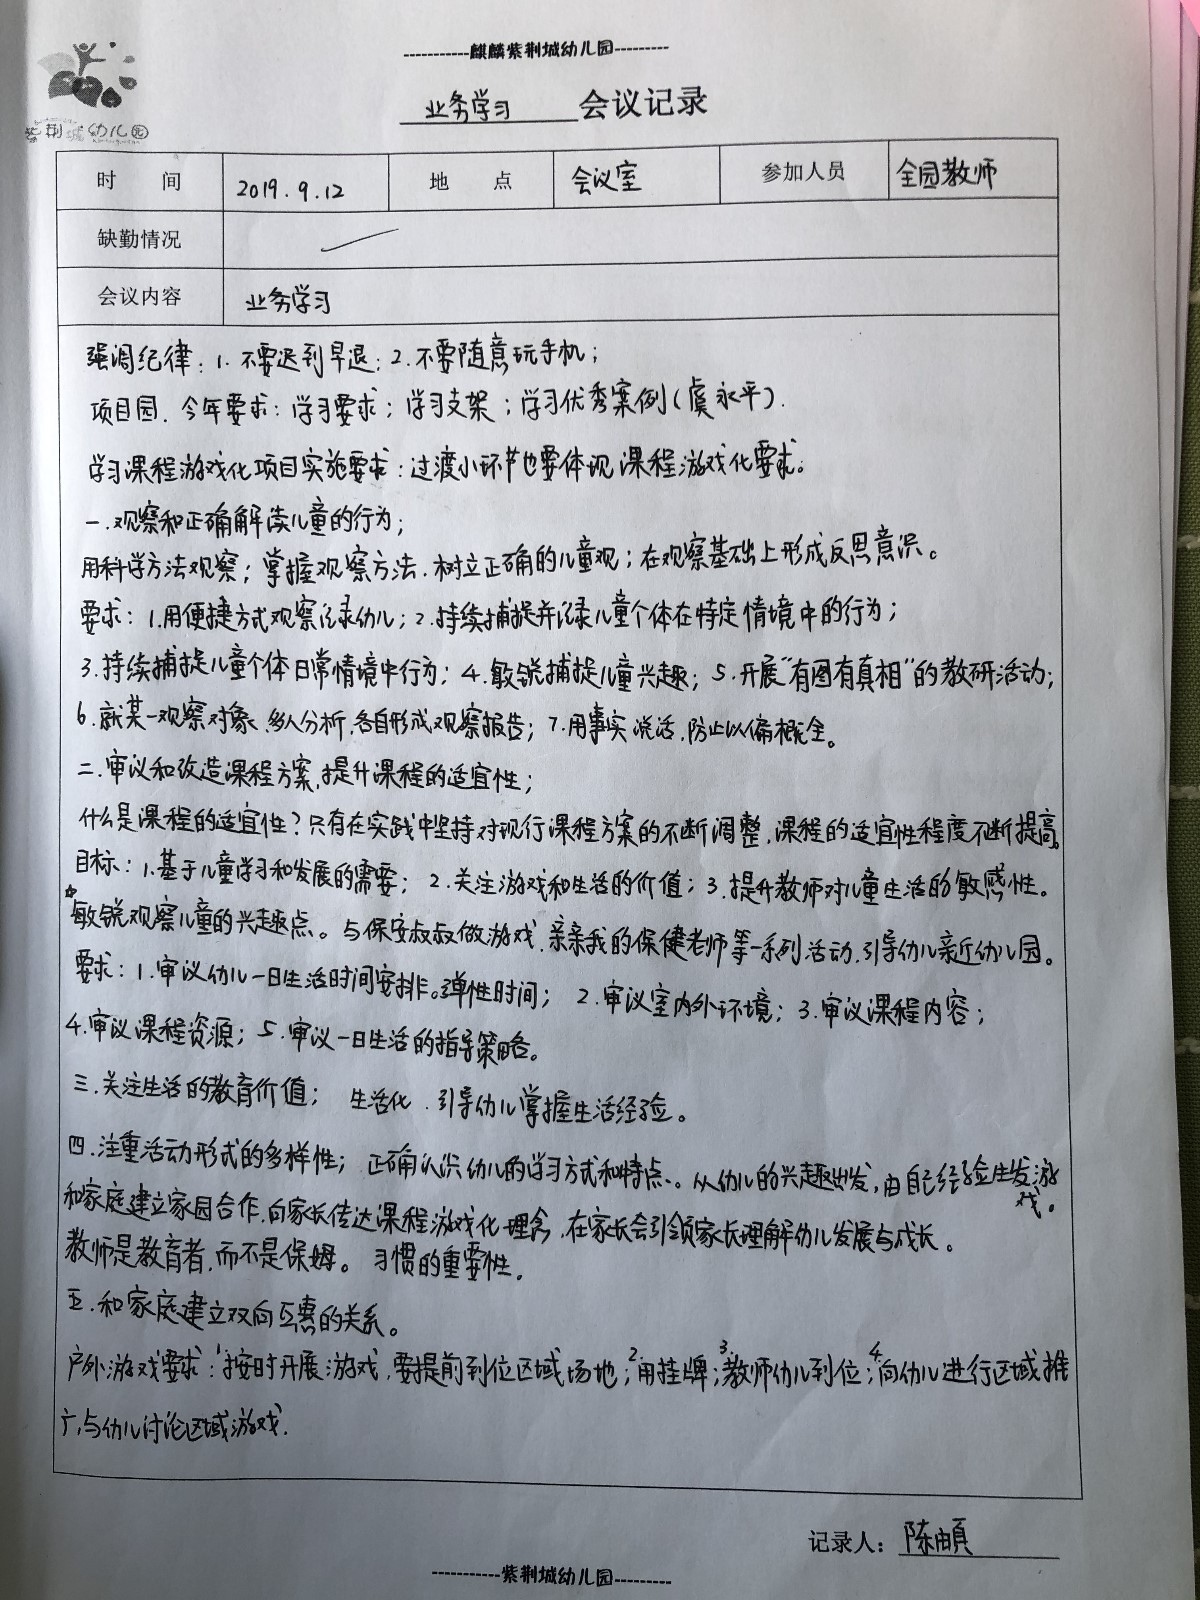 -----------麒麟紫荆城幼儿园---------
紫荆城幼儿园
业务学习 会议记录
时 间 2019.9.12 地 点 会议室 参加人员 全园教师
缺勤情况
会议内容 业务学习
强调纪律：1.不要迟到早退；2.不要随意玩手机；
项目园.今年要求：学习要求；学习支架；学习优秀案例(虞永平).
学习课程游戏化项目实施要求：过渡小环节也要体现课程游戏化要求。
一.观察和正确解读儿童的行为；
用科学方法观察；掌握观察方法.树立正确的儿童观；在观察基础上形成反思意识。
要求：1.用便捷方式观察记录幼儿；2.持续捕捉并记录儿童个体在特定情境中的行为；
3.持续捕捉儿童个体日常情境中行为；4.敏锐捕捉儿童兴趣；5.开展"有图有真相"的教研活动；
6.就某一观察对象、多人分析,各自形成观察报告；7.用事实说话,防止以偏概全。
二.审议和改造课程方案,提升课程的适宜性；
什么是课程的适宜性？只有在实践中坚持对现行课程方案的不断调整,课程的适宜性程度不断提高。
目标：1.基于儿童学习和发展的需要；2.关注游戏和生活的价值；3.提升教师对儿童生活的敏感性。
☆敏锐观察儿童的兴趣点。与保安叔叔做游戏.亲亲我的保健老师等一系列活动.引导幼儿亲近幼儿园。
要求：1.审议幼儿一日生活时间安排。弹性时间；2.审议室内外环境；3.审议课程内容；
4.审议课程资源；5.审议一日生活的指导策略。
三.关注生活的教育价值；生活化.引导幼儿掌握生活经验。
四.注重活动形式的多样性；正确认识幼儿的学习方式和特点。从幼儿的兴趣出发,由自己经验生发游戏。
和家庭建立家园合作.向家长传达课程游戏化理念.在家长会引领家长理解幼儿发展与成长。
教师是教育者,而不是保姆。习惯的重要性.
五.和家庭建立双向互惠的关系。
户外游戏要求：1.按时开展游戏,要提前到位区域场地；2.用挂牌；3.教师幼儿到位；4.向幼儿进行区域推
广,与幼儿讨论区域游戏.
记录人：陈
-----------紫荆城幼儿园---------